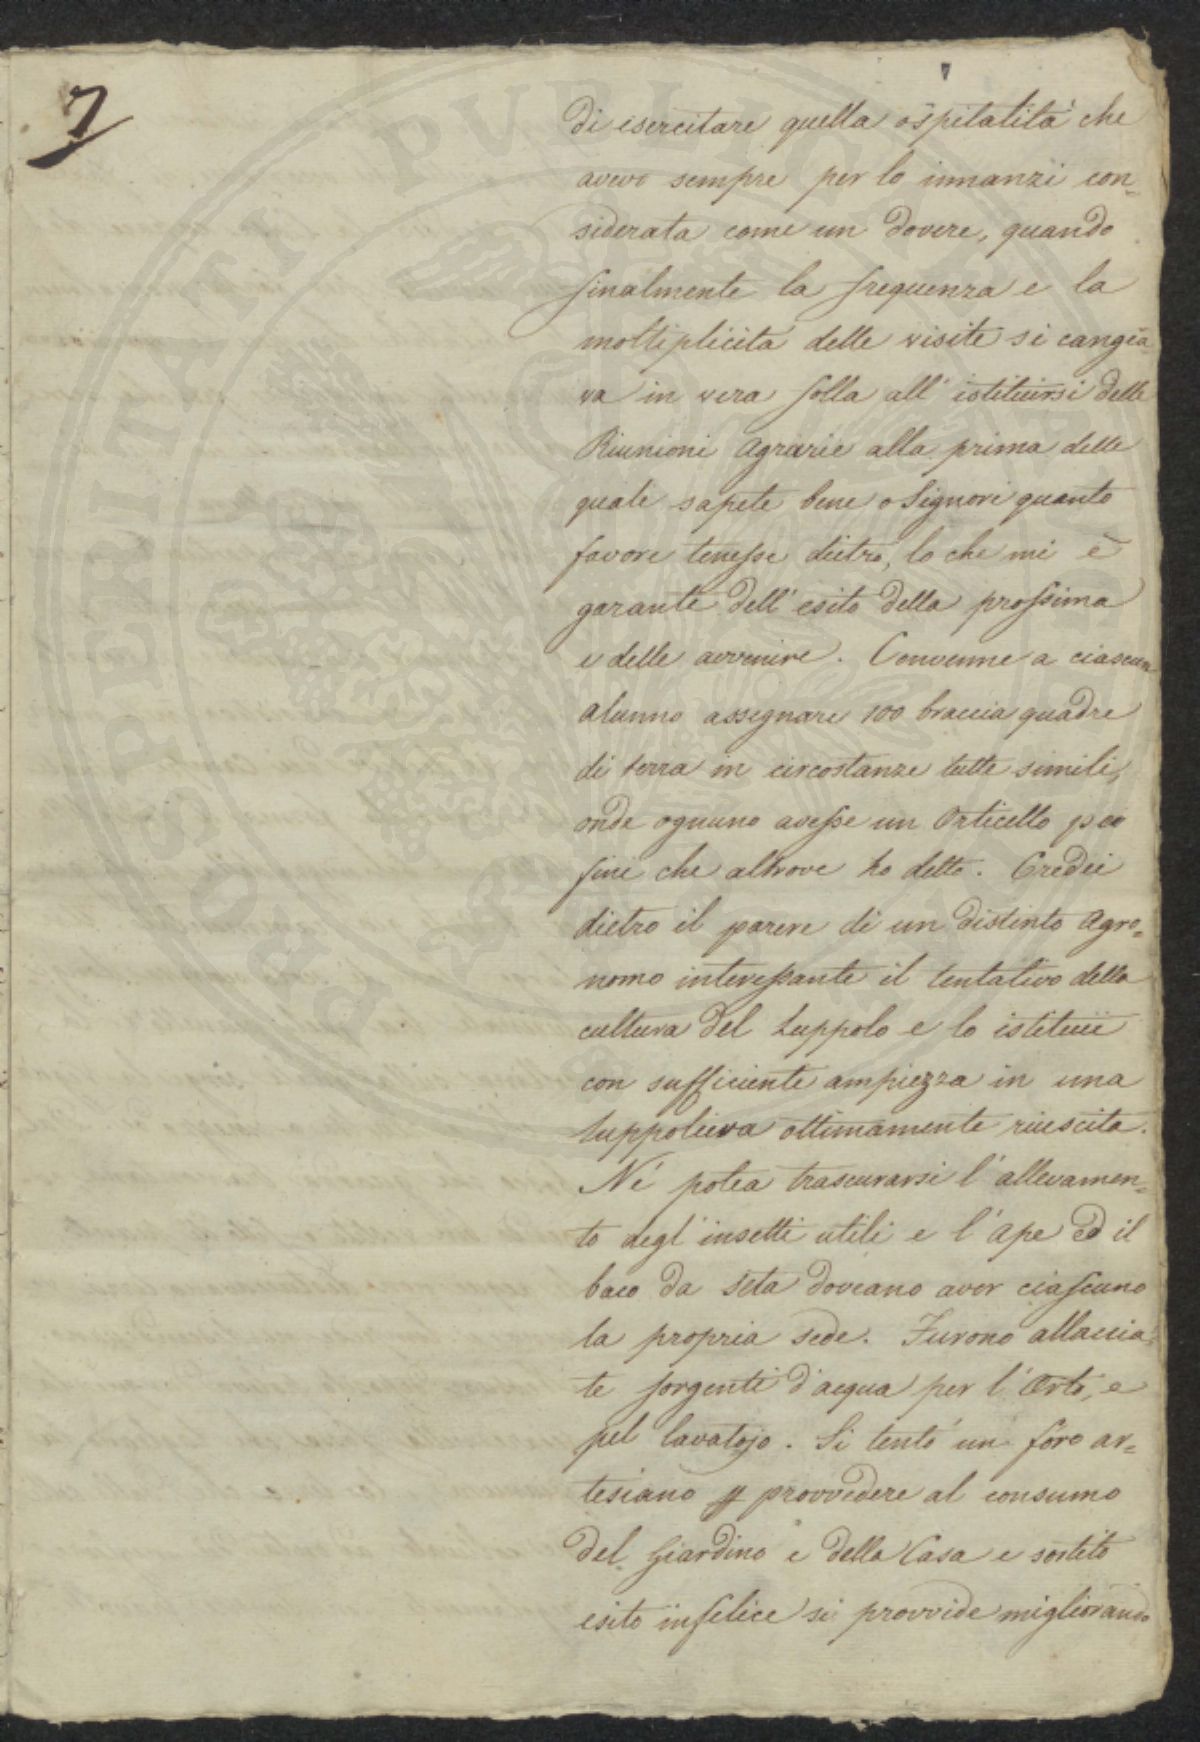 7
7
di esercitare quella ospitalità che
avevo sempre per lo innanzi con=
siderata come un dovere, quando
finalmente la frequenza e la
moltiplicità delle visite si cangia
va in vera folla all'istituirsi delle
Riunioni Agrarie alla prima delle
quali sapete bene o Signori quanto
favore tenesse dietro, lo che mi è
garante dell'esito della prossima
e delle avvenire. Convenne a ciascun
alunno assegnare 100 braccia quadre
di terra in circostanze tutte simili,
onde ognuno avesse un Orticello pei
fini che altrove ho detto. Credei
dietro il parere di un distinto Agro=
nomo interessante il tentativo della
cultura del Luppolo e lo istituii
con sufficiente ampiezza in una
Luppoliera ottimamente riuscita.
Nè potea trascurarsi l'allevamen=
to degl'insetti utili e l'Ape ed il
baco da seta doveano aver ciascuno
la propria sede. Furono allaccia=
te sorgenti d'acqua per l'Orto, e
pel lavatojo. Si tentò un foro ar=
tesiano p provvedere al consumo
del Giardino e della Casa e sortito
esito infelice si provvide migliorando
PROSPERITATI PVBLICAE